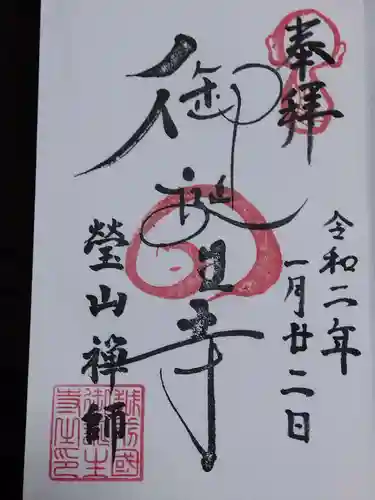 奉拝
令和二年
一月廿二日
御誕生寺
瑩山禅師